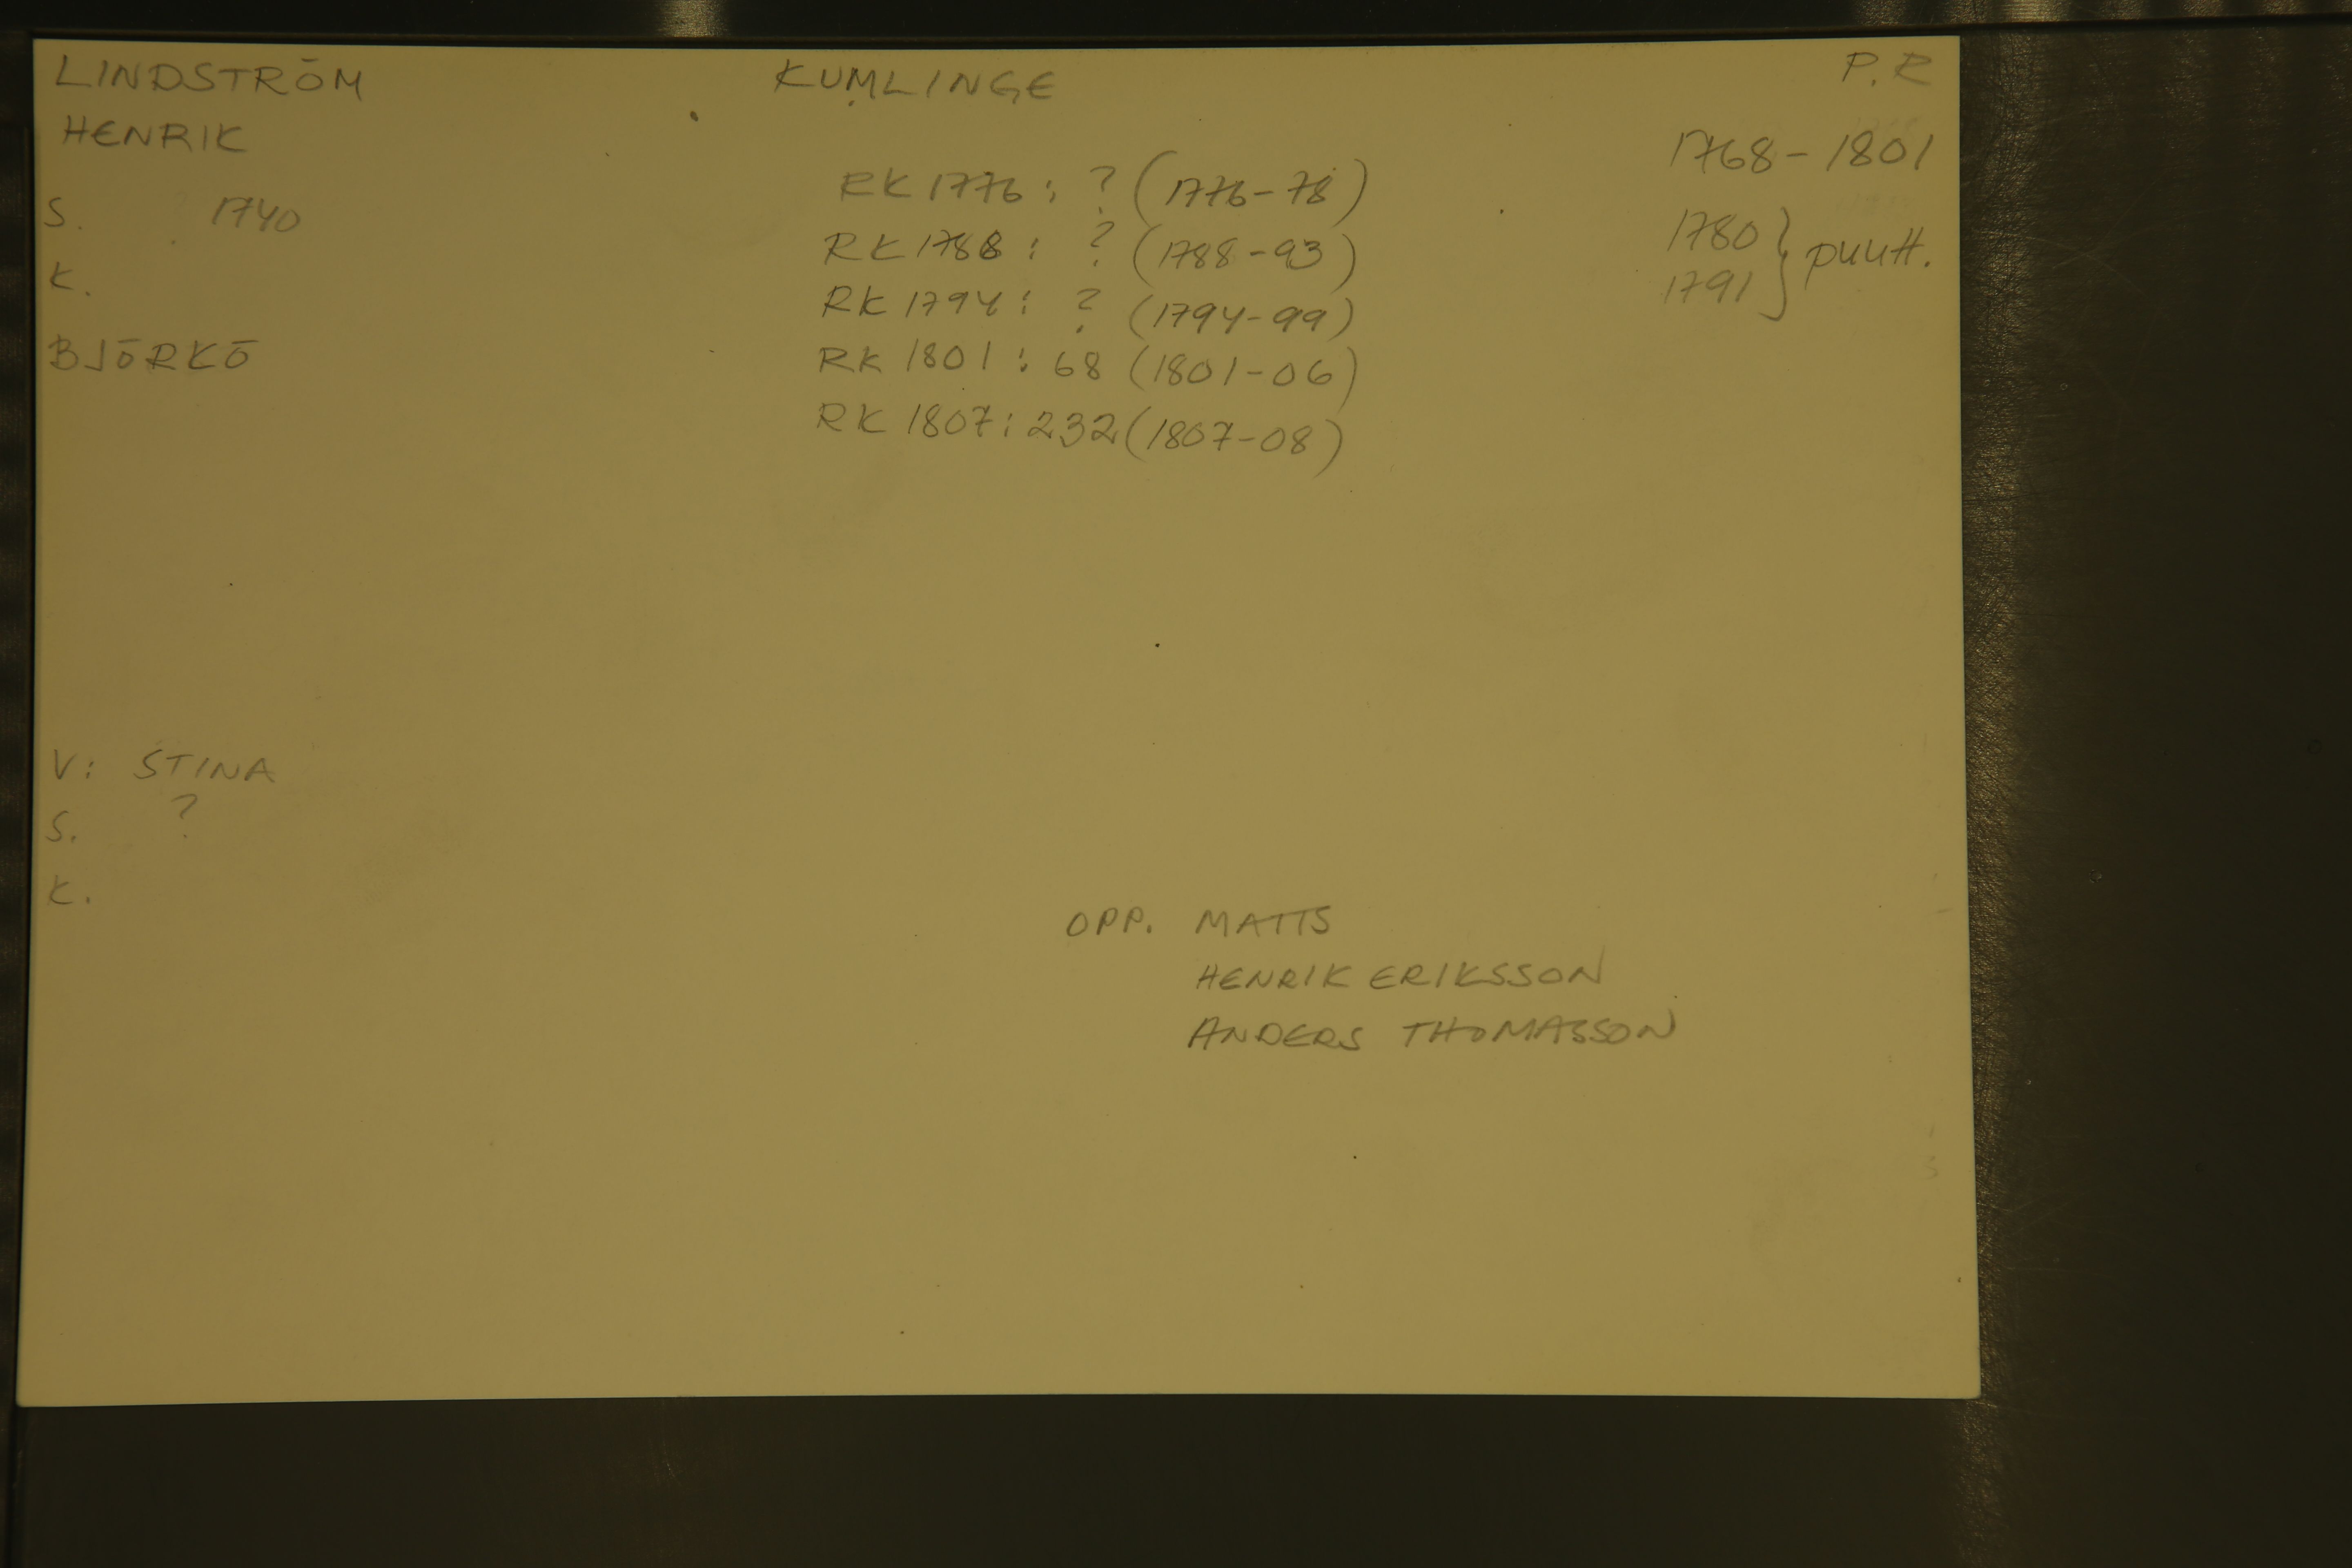 LINDSTRÖM KUMLINGE P.R
HENRIK
1768-1801
RK 1776: ? (1776-78)
S. 1740
1780 } puutt.
RK 1788: ? (1788-93)
K.
1791
RK 1794: ? (1794-99)
BJÖRKÖ
RK 1801: 68 (1801-06)
RK 1807: 232 (1807-08)
V: STINA
S. ?
K.
OPP. MATTS
HENRIK ERIKSSON
ANDERS THOMASSON